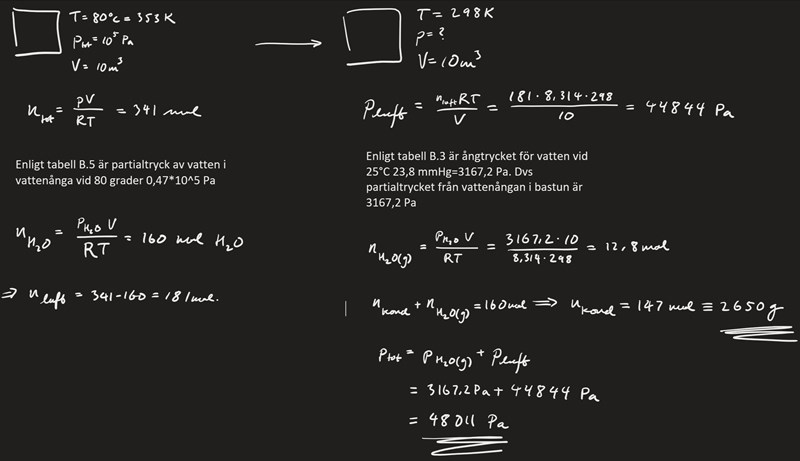 T = 80°C = 353K
Ptot = 10⁵ Pa
V = 10m³
n_tot = pV/RT = 341 mol
Enligt tabell B.5 är partialtryck av vatten i
vattenånga vid 80 grader 0,47*10^5 Pa
n_H₂O = P_H₂O V/RT = 160 mol H₂O
⇒ n_luft = 341-160 = 181 mol.
T = 298K
p = ?
V = 10m³
P_luft = n_luft RT/V = 181 · 8,314 · 298/10 = 44844 Pa
Enligt tabell B.3 är ångtrycket för vatten vid
25°C 23,8 mmHg=3167,2 Pa. Dvs
partialtrycket från vattenångan i bastun är
3167,2 Pa
n_H₂O(g) = P_H₂O V/RT = 3167,2 · 10/8,314 · 298 = 12,8 mol
n_kond + n_H₂O(g) = 160 mol ⇒ n_kond = 147 mol ≡ 2650 g
Ptot = P_H₂O(g) + P_luft
= 3167,2 Pa + 44844 Pa
= 48011 Pa